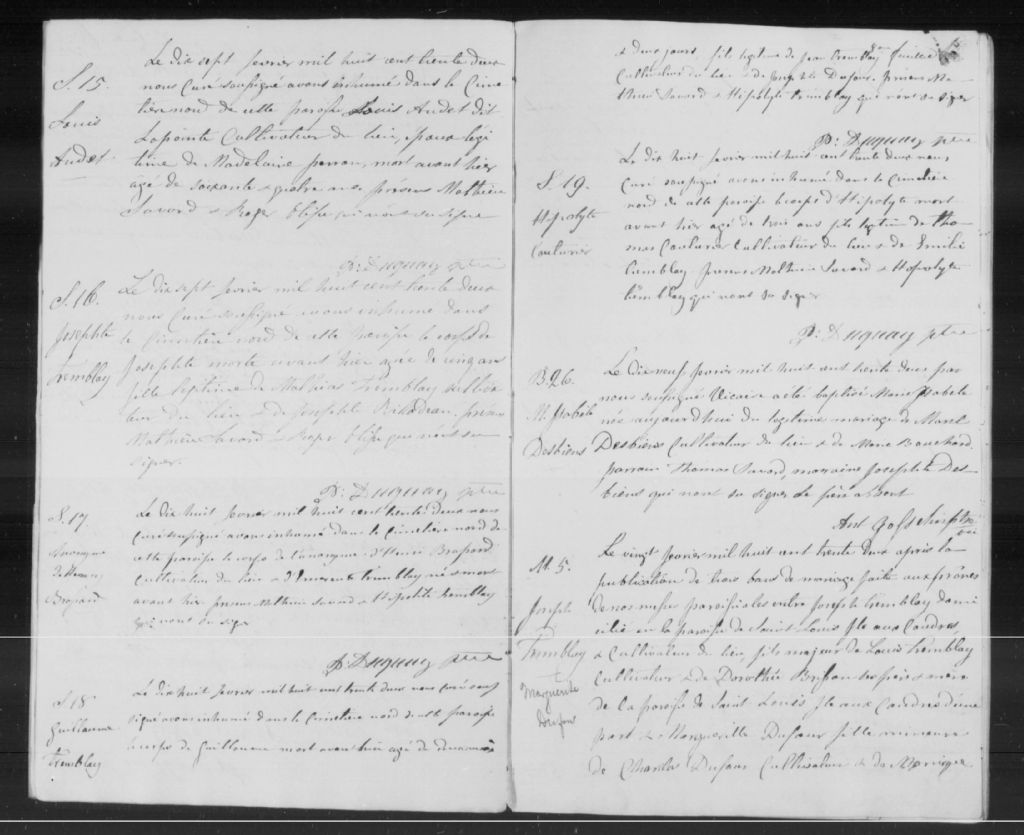 S. 15.
Louis
Audet
Le dix sept fevrier mil huit cent trente deux
nous Curé soussigné avons inhumé dans le Cime
tière nord de cette paroisse Louis Audet dit
Lapointe Cultivateur du lieu, epoux légi
time de Madelaine perron, mort avant hier
agé de soixante & quatre ans présens Mathieu
Savard & Roger Blisse qui n'ont su signer
P: Duguay ptre
S. 16.
Josephte
Tremblay
Le dix sept fevrier mil huit cent trente deux
nous Curé soussigné avons inhumé dans
le Cimetière nord de cette paroisse le corps de
Josephte morte avant hier agée de cinq ans
fille legitime de Mathias Tremblay cultiva
teur du lieu & de Josephte presens
Mathieu Savard & Roger Blisse qui n'ont su
signer.
P: Duguay ptre
S. 17
Anonyme
de Henri
Brassard
Le dix huit fevrier mil huit cent trente deux nous
Curé soussigné avons inhumé dans le Cimetière nord de
cette paroisse le corps de l'anonyme d'Henri Brassard
Cultivateur du lieu & d' Tremblay né & mort
avant hier presens Mathieu Savard & Hipolite Tremblay
qui n'ont su signer
P: Duguay ptre
S. 18
Guillaume
Tremblay
Le dix huit fevrier mil huit cent trente deux nous Curé sous
signé avons inhumé dans le Cimetière nord de cette paroisse
le corps de Guillaume mort avant hier agé de
& deux jours fils legitime de Jean Tremblay
Cultivateur du lieu & de Dufour. Presens Ma
thieu Savard & Hipolyte Tremblay qui n'ont su signer
P: Duguay ptre
S. 19.
Hipolyte
Couturier
Le dix huit fevrier mil huit cent trente deux nous
Curé soussigné avons inhumé dans le Cimetière
nord de cette paroisse le corps d'Hipolyte mort
avant hier agé de trois ans fils legitime de Tho
mas Couturier Cultivateur du lieu & de Emilie
Tremblay. Presens Mathieu Savard & Hipolyte
Tremblay qui n'ont su signer
P: Duguay ptre
B. 26.
M. Isabele
Desbiens
Le dix neuf fevrier mil huit cent trente deux par
nous soussigné Vicaire a été baptisé Marie Isabele
née aujourd'hui du legitime mariage de Marcel
Desbiens Cultivateur du lieu & de Marie Bouchard.
parrain Thomas Savard, marraine Josephte Des
biens qui n'ont su signer le père absent
Ant Gosselin ptre
vic
M. 5.
Joseph
Tremblay
Marguerite
Dufour
Le vingt fevrier mil huit cent trente deux après la
publication de trois bans de mariage faite aux prônes
de nos messes paroissiales entre Joseph Tremblay domi
cilié en la paroisse de Saint Louis Isle aux Coudres,
& Cultivateur du lieu fils majeur de Louis Tremblay
Cultivateur & de Dorothée Brisson ses père & mère
de la paroisse de Saint Louis Isle aux Coudres d'une
part & Marguerite Dufour fille mineure
de Charles Dufour Cultivateur & de Monique